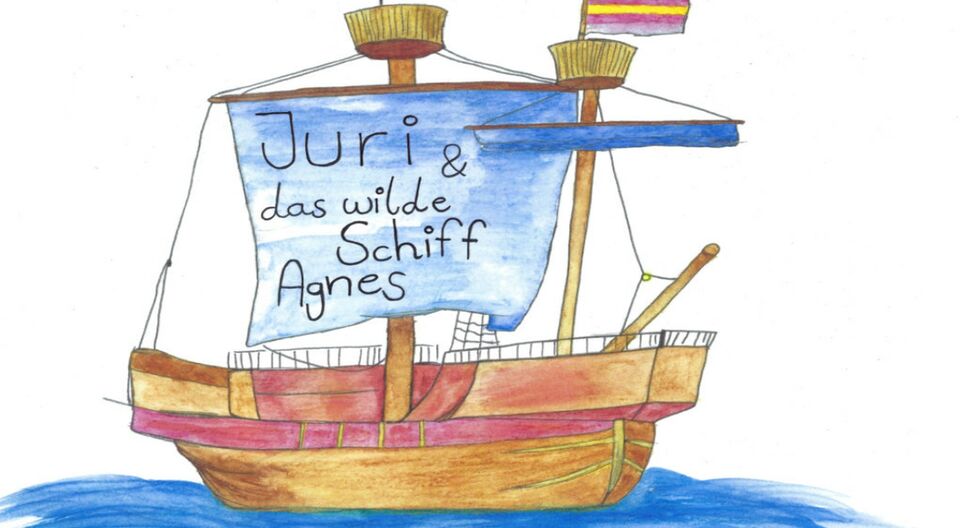 Juri &
das wilde
Schiff
Agnes